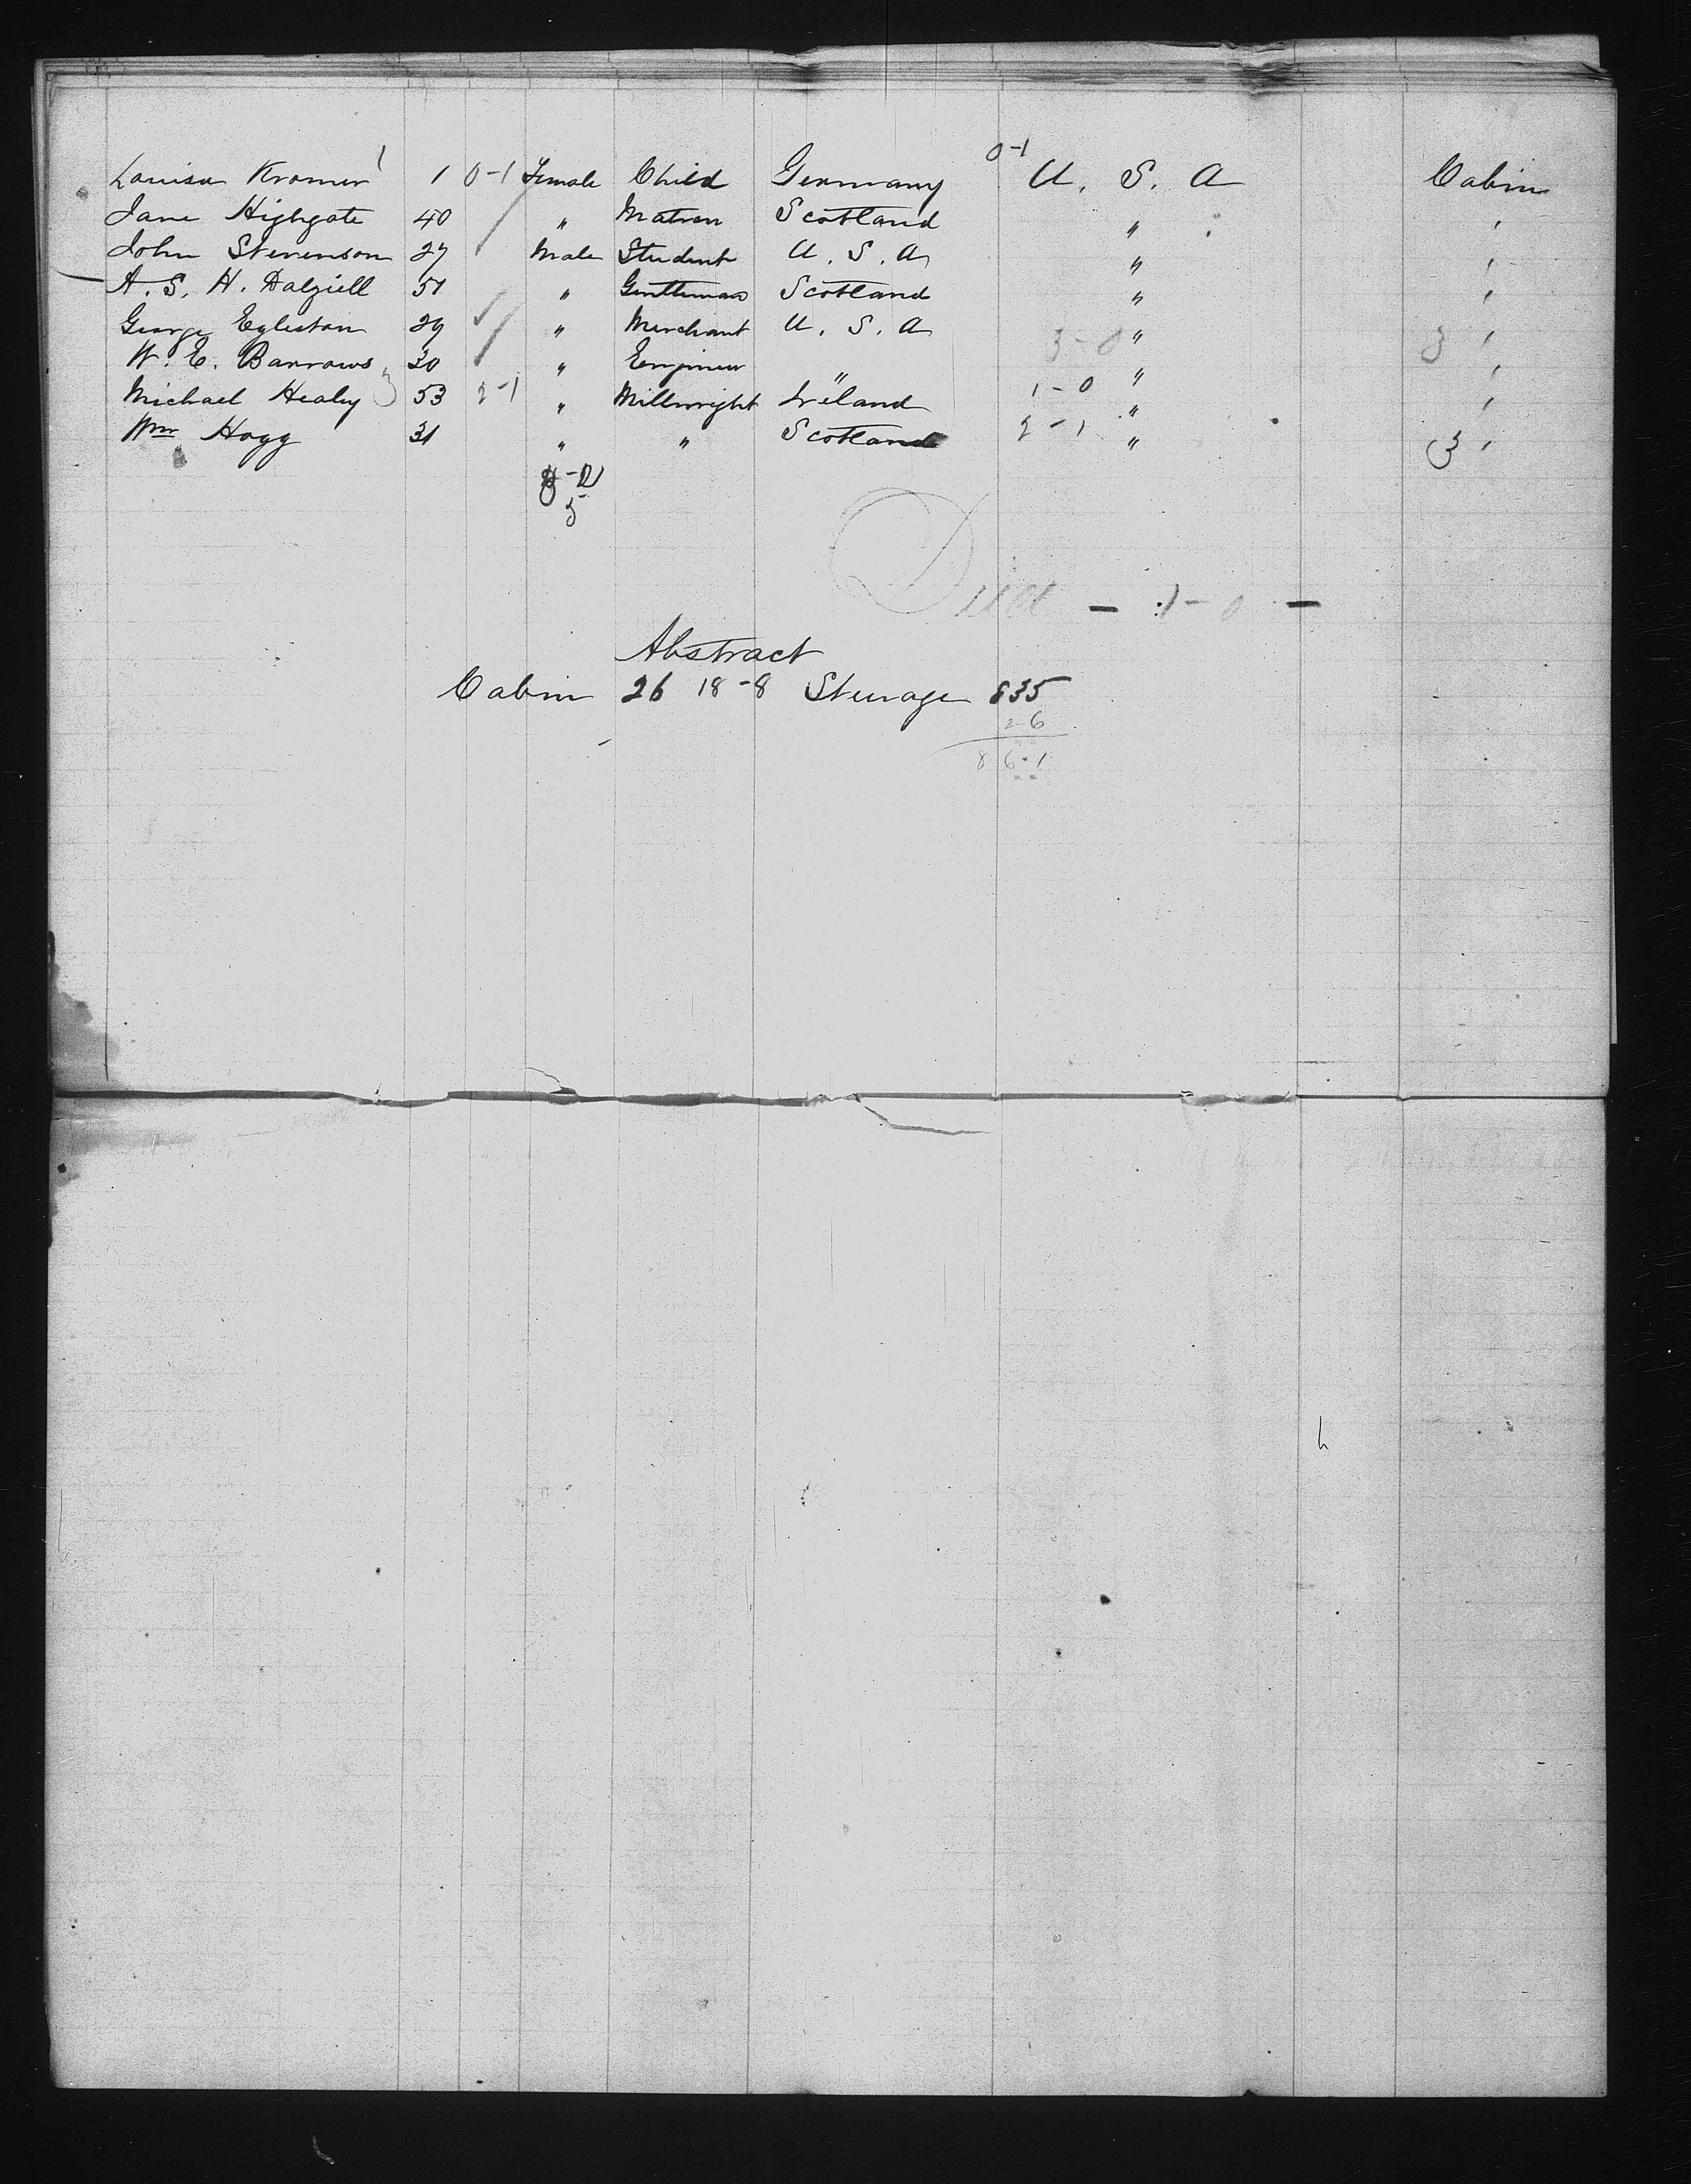 Louisa Kromer 1 1 0-1 Female Child Germany 0-1 U. S. A Cabin
Jane Highgate 40 " Matron Scotland " '
John Stevenson 27 Male Student U. S. A " '
A. S. H. Dalziell 51 " Gentleman Scotland " '
George Egleston 29 " Merchant U. S. A 3-0 " 3 '
W. E. Barrows 30 " Engineer " " '
Michael Healy 3 53 2-1 " Millwright Ireland 1-0 " '
Wm Hogg 31 " " Scotland 2-1 " 3 '
5
Died - 1-0 -
Abstract
Cabin 26 18-8 Steerage 835
26
861